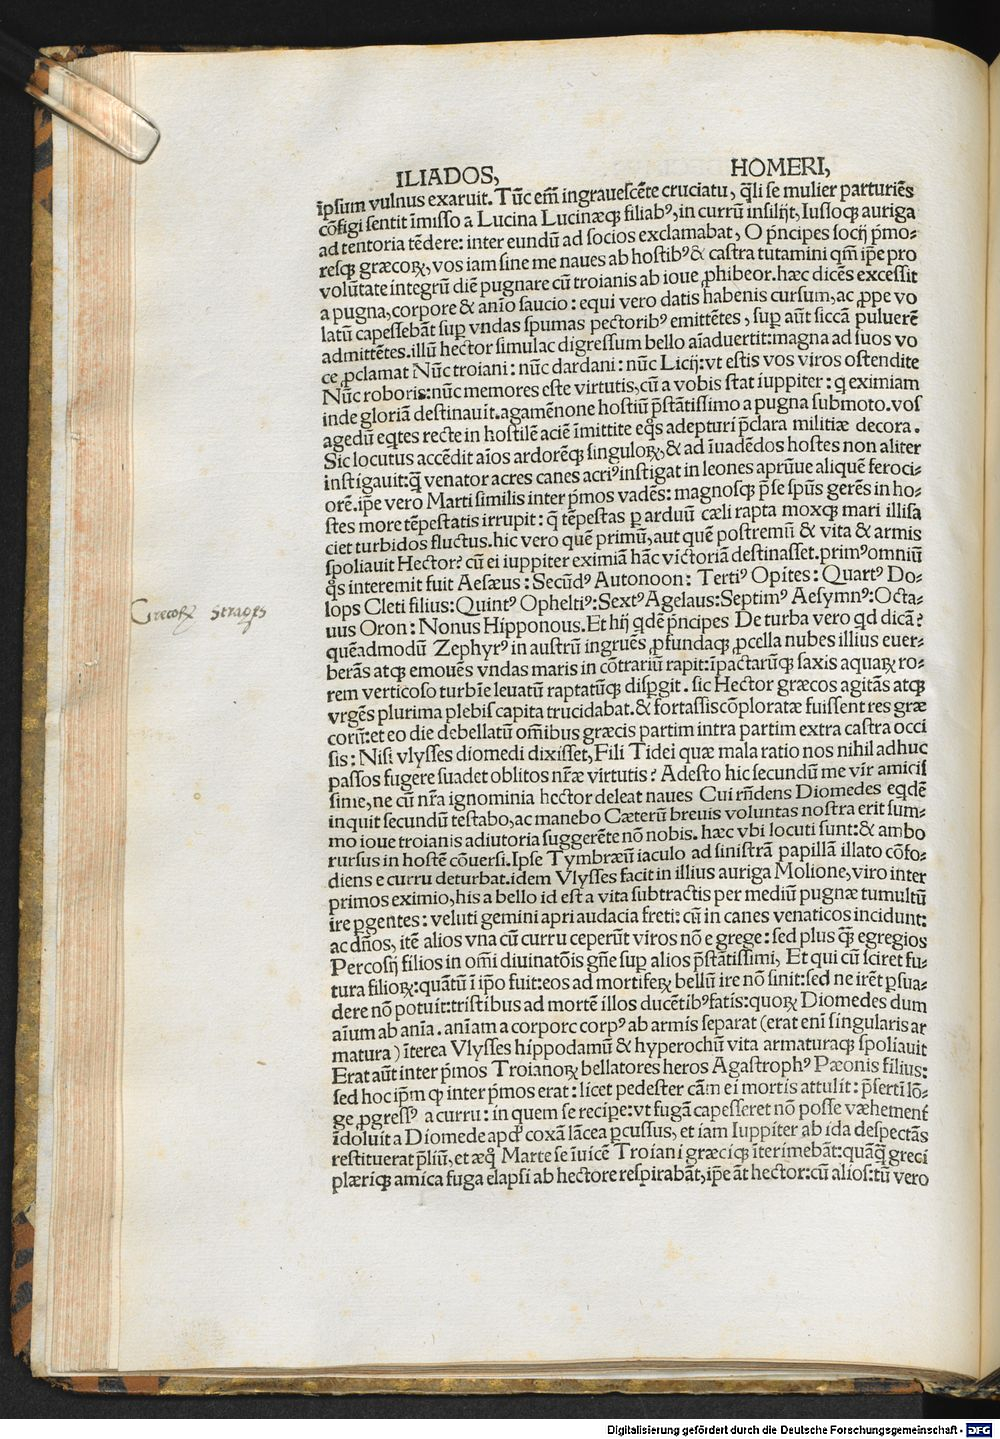 ILIADOS, HOMERI,
īpsum vulnus exaruit. Tūc em̄ ingrauescēte cruciatu, q̄li se mulier parturiēs
cōfigi sentit īmisso a Lucina Lucinæq; filiabꝰ, in currū insilijt, Iussoq; auriga
ad tentoria tēdere: inter eundū ad socios exclamabat, O p̄ncipes socij p̄mo⸗
resq; græcoꝝ, vos iam sine me naues ab hostibꝰ & castra tutamini qm̄ ip̄e pro
volūtate integrū diē pugnare cū troianis ab ioue ꝓhibeor. hæc dicēs excessit
a pugna, corpore & anīo saucio: equi vero datis habenis cursum, ac ꝓpe vo
latū capessebāt suꝑ vndas spumas pectoribꝰ emittētes, suꝑ aūt siccā puluerē
admittētes. illū hector simulac digressum bello aīaduertit: magna ad suos vo
ce ꝓclamat Nūc troiani: nūc dardani: nūc Licij: vt estis vos viros ostendite
Nūc roboris: nūc memores este virtutis, cū a vobis stat iuppiter: q eximiam
inde gloriā destinauit. agamēnone hostiū p̄stātissimo a pugna submoto. vos
agedū eqtes recte in hostilē aciē īmittite eqs̄ adepturi p̄clara militiæ decora.
Sic locutus accēdit aīos ardorēq; singuloꝝ, & ad īuadēdos hostes non aliter
instigauit: q̄ venator acres canes acriꝰ instigat in leones aprūue aliquē feroci⸗
orē. ip̄e vero Marti similis inter p̄mos vadēs: magnosq; p̄ se sp̄us gerēs in ho⸗
stes more tēpestatis irrupit: q̄ tēpestas ꝑ arduū cæli rapta moxq; mari illisa
ciet turbidos fluctus. hic vero quē primū, aut quē postremū & vita & armis
spoliauit Hector? cū ei iuppiter eximiā hāc victoriā destinasset. primꝰ omniū
qs̄ interemit fuit Aesæus: Secūdꝰ Autonoon: Tertiꝰ Opites: Quartꝰ Do⸗
lops Cleti filius: Quintꝰ Opheltiꝰ: Sextꝰ Agelaus: Septimꝰ Aesymnꝰ: Octa⸗
uus Oron: Nonus Hipponous. Et hij qdē p̄ncipes De turba vero qd dicā?
quēadmodū Zephyrꝰ in austrū ingruēs ꝓfundaq; ꝓcella nubes illius euer⸗
berās atq; emouēs vndas maris in cōtrariū rapit: īpactarūq; saxis aquaꝝ ro⸗
rem verticoso turbīe leuatū raptatūq; dispgit. sic Hector græcos agitās atq;
vrgēs plurima plebis capita trucidabat. & fortassis cōploratæ fuissent res græ
corū: et eo die debellatū om̄ibus græcis partim intra partim extra castra occi
sis: Nisi vlysses diomedi dixisset, Fili Tidei quæ mala ratio nos nihil adhuc
passos fugere suadet oblitos nr̄æ virtutis? Adesto hic secundū me vir amicis
sime, ne cū nr̄a ignominia hector deleat naues Cui rn̄dens Diomedes eqdē
inquit secundū testabo, ac manebo Cæterū breuis voluntas nostra erit sum⸗
mo ioue troianis adiutoria suggerēte nō nobis. hæc vbi locuti sunt: & ambo
rursus in hostē cōuersi. Ipse Tymbræū iaculo ad sinistrā papillā illato cōfo⸗
diens e curru deturbat. idem Vlysses facit in illius auriga Molione, viro inter
primos eximio, his a bello id est a vita subtractis per mediū pugnæ tumultū
ire pgentes: veluti gemini apri audacia freti: cū in canes venaticos incidunt:
ac dn̄os, itē alios vna cū curru ceperūt viros nō e grege: sed plus q̄; egregios
Percosij filios in om̄i diuinatōis gn̄e suꝑ alios p̄stātissimi, Et qui cū sciret fu⸗
tura filioꝝ: quātū ī ip̄o fuit: eos ad mortiferꝝ bellū ire nō sinit: sed ne irēt ꝑsua⸗
dere nō potuit: tristibus ad mortē illos ducētibꝰ fatis: quoꝝ Diomedes dum
aīum ab anīa. anīam a corpore corpꝰ ab armis separat (erat eni singularis ar
matura) īterea Vlysses hippodamū & hyperochū vita armaturaq; spoliauit
Erat aūt inter p̄mos Troianoꝝ bellatores heros Agastrophꝰ Pæonis filius:
sed hoc ip̄m q inter p̄mos erat: licet pedester cām ei mortis attulit: p̄sertī lō⸗
ge ꝓgressꝰ a curru: in quem se recipe: vt fugā capesseret nō posse væhement̄
īdoluit a Diomede apd coxā lācea ꝑcussus, et iam Iuppiter ab ida despectās
restituerat p̄liū, et æq̄ Marte se īuicē Troiani græciq; īterimebāt: quāq̄ greci
plæriq; amica fuga elapsi ab hectore respirabāt, ip̄e āt hector: cū alios: tū vero
Grecoꝝ strages
Digitalisierung gefördert durch die Deutsche Forschungsgemeinschaft - DFG